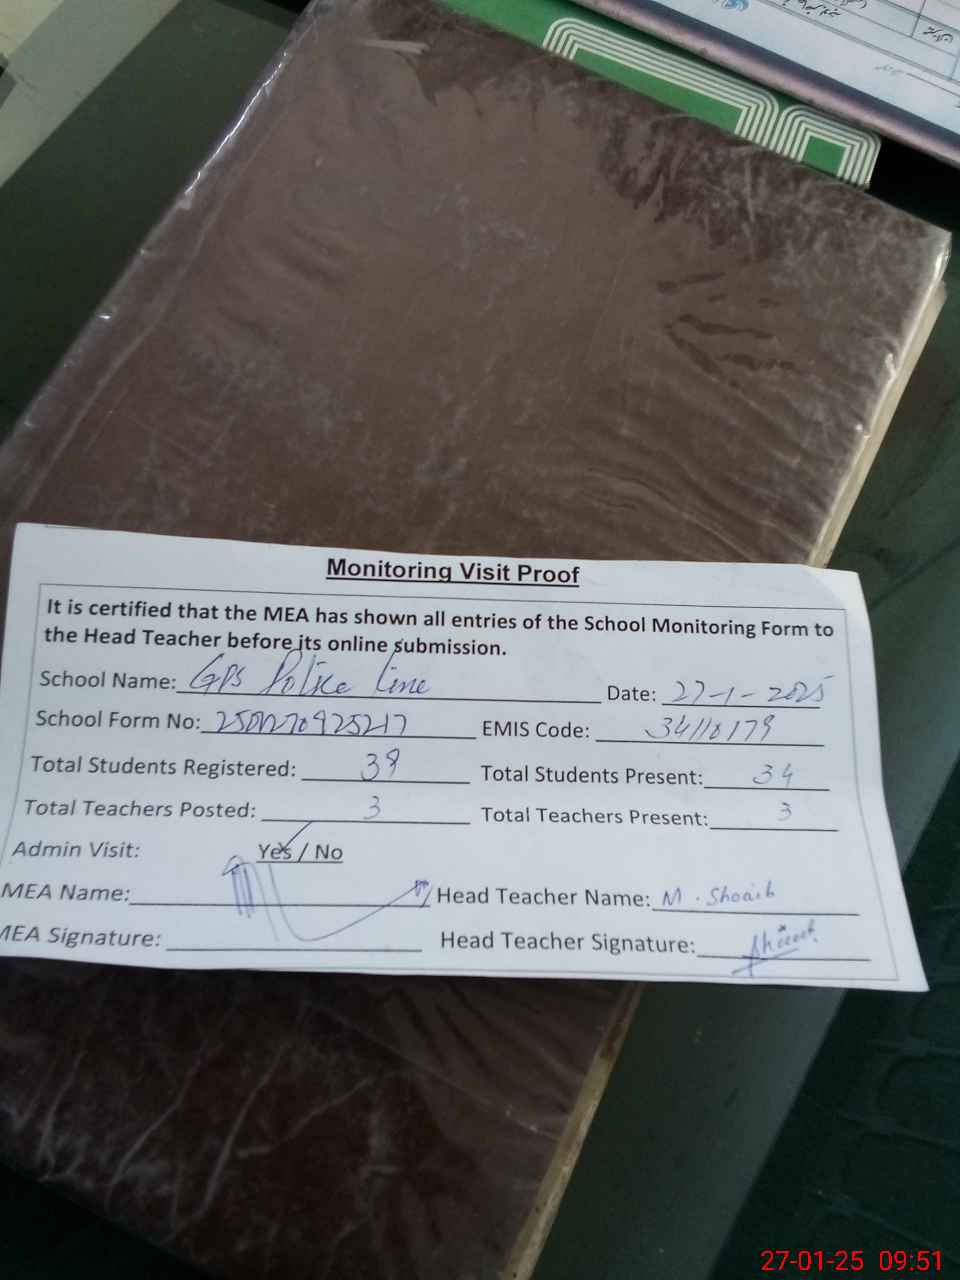 Monitoring Visit Proof
It is certified that the MEA has shown all entries of the School Monitoring Form to
the Head Teacher before its online submission.
School Name: GPS Police Line Date: 27-1-2025
School Form No: EMIS Code: 34110179
Total Students Registered: 39 Total Students Present: 34
Total Teachers Posted: 3 Total Teachers Present: 3
Admin Visit: Yes / No
MEA Name: Head Teacher Name: M. Shoaib
MEA Signature: Head Teacher Signature: Shoaib
27-01-25 09:51